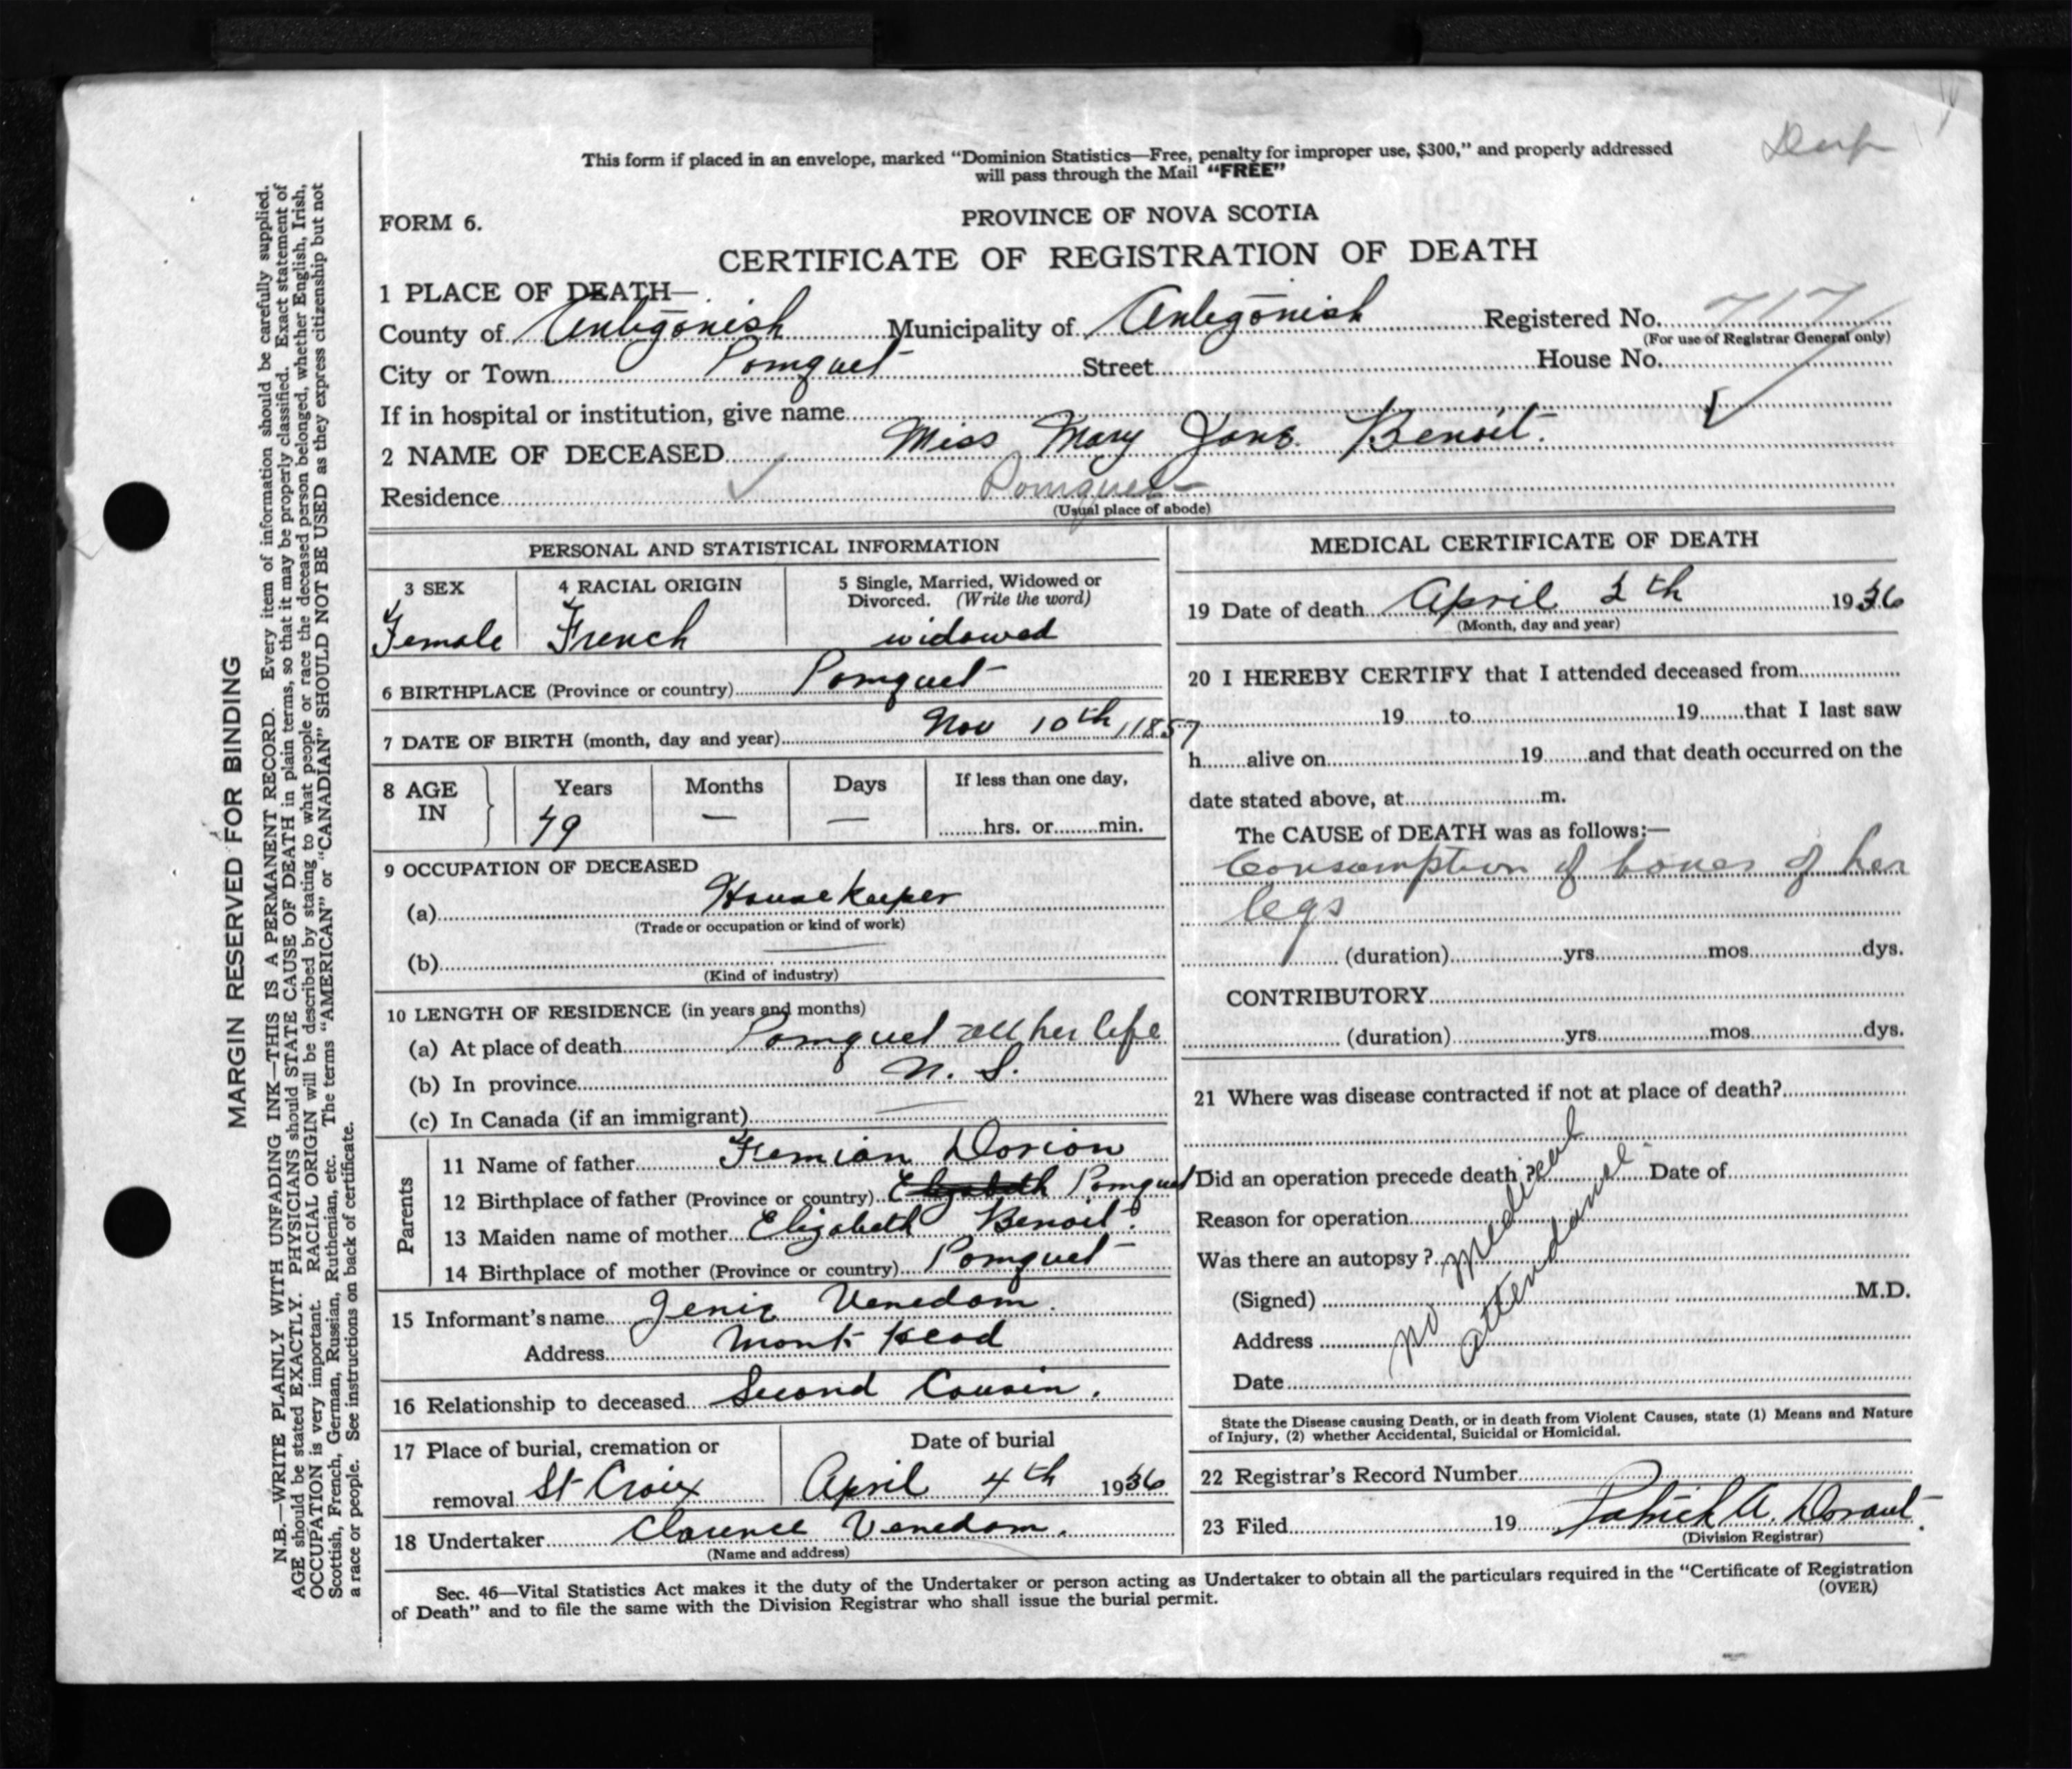 Dup
This form if placed in an envelope, marked “Dominion Statistics—Free, penalty for improper use, $300,” and properly addressed
will pass through the Mail “FREE”
FORM 6.
PROVINCE OF NOVA SCOTIA
CERTIFICATE OF REGISTRATION OF DEATH
1 PLACE OF DEATH—
County of Antigonish Municipality of Antigonish Registered No. 717
(For use of Registrar General only)
City or Town Pomquet Street House No.
If in hospital or institution, give name
2 NAME OF DECEASED Miss Mary Jane Benoit.
Residence Pomquet
(Usual place of abode)
PERSONAL AND STATISTICAL INFORMATION
3 SEX 4 RACIAL ORIGIN 5 Single, Married, Widowed or
Divorced. (Write the word)
Female French widowed
6 BIRTHPLACE (Province or country) Pomquet
7 DATE OF BIRTH (month, day and year) Nov 10th 1857
8 AGE IN Years Months Days If less than one day,
79 — — hrs. or min.
9 OCCUPATION OF DECEASED
(a) Housekeeper
(Trade or occupation or kind of work)
(b)
(Kind of industry)
10 LENGTH OF RESIDENCE (in years and months)
(a) At place of death Pomquet all her life
(b) In province N. S.
(c) In Canada (if an immigrant) —
Parents
11 Name of father Fremian Dorion
12 Birthplace of father (Province or country) Elizabeth Pomquet
13 Maiden name of mother Elizabeth Benoit
14 Birthplace of mother (Province or country) Pomquet
15 Informant's name Jenie Venedam.
Address Monk Head
16 Relationship to deceased Second Cousin.
17 Place of burial, cremation or Date of burial
removal St Croix April 4th 1936
18 Undertaker Clarence Venedam.
(Name and address)
MEDICAL CERTIFICATE OF DEATH
19 Date of death April 2th 1936
(Month, day and year)
20 I HEREBY CERTIFY that I attended deceased from
19 to 19 that I last saw
h alive on 19 and that death occurred on the
date stated above, at m.
The CAUSE of DEATH was as follows:—
Consumption of bones of her
legs
(duration) yrs mos dys.
CONTRIBUTORY
(duration) yrs mos dys.
21 Where was disease contracted if not at place of death?
Did an operation precede death? Date of
Reason for operation
Was there an autopsy?
(Signed) M.D.
Address
Date
no medical
attendance
State the Disease causing Death, or in death from Violent Causes, state (1) Means and Nature
of Injury, (2) whether Accidental, Suicidal or Homicidal.
22 Registrar's Record Number
23 Filed 19 Patrick A. Dorant.
(Division Registrar)
Sec. 46—Vital Statistics Act makes it the duty of the Undertaker or person acting as Undertaker to obtain all the particulars required in the “Certificate of Registration
of Death” and to file the same with the Division Registrar who shall issue the burial permit.
(OVER)
MARGIN RESERVED FOR BINDING
N.B.—WRITE PLAINLY WITH UNFADING INK—THIS IS A PERMANENT RECORD. Every item of information should be carefully supplied.
AGE should be stated EXACTLY. PHYSICIANS should STATE CAUSE OF DEATH in plain terms, so that it may be properly classified. Exact statement of
OCCUPATION is very important. RACIAL ORIGIN will be described by stating to what people or race the deceased person belonged, whether English, Irish,
Scottish, French, German, Russian, Ruthenian, etc. The terms “AMERICAN” or “CANADIAN” SHOULD NOT BE USED as they express citizenship but not
a race or people. See instructions on back of certificate.